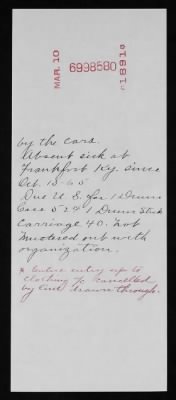 MAR. 10
6998580
1891
by the card.
Absent sick at
Frankfort Ky. since
Oct. 13-65
Due U.S. for 1 Drum
Case 52¢ 1 Drum Stick
Carriage 40. Not
mustered out with
organization.
* entire entry up to
clothing % cancelled
by line drawn through.